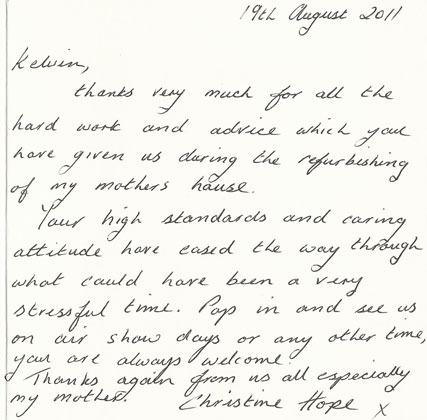 19th August 2011
Kelvin,
thanks very much for all the
hard work and advice which you
have given us during the refurbishing
of my mothers house.
Your high standards and caring
attitude have eased the way through
what could have been a very
stressful time. Pop in and see us
on air show days or any other time,
you are always welcome.
Thanks again from us all especially
my mother. Christine Hope x